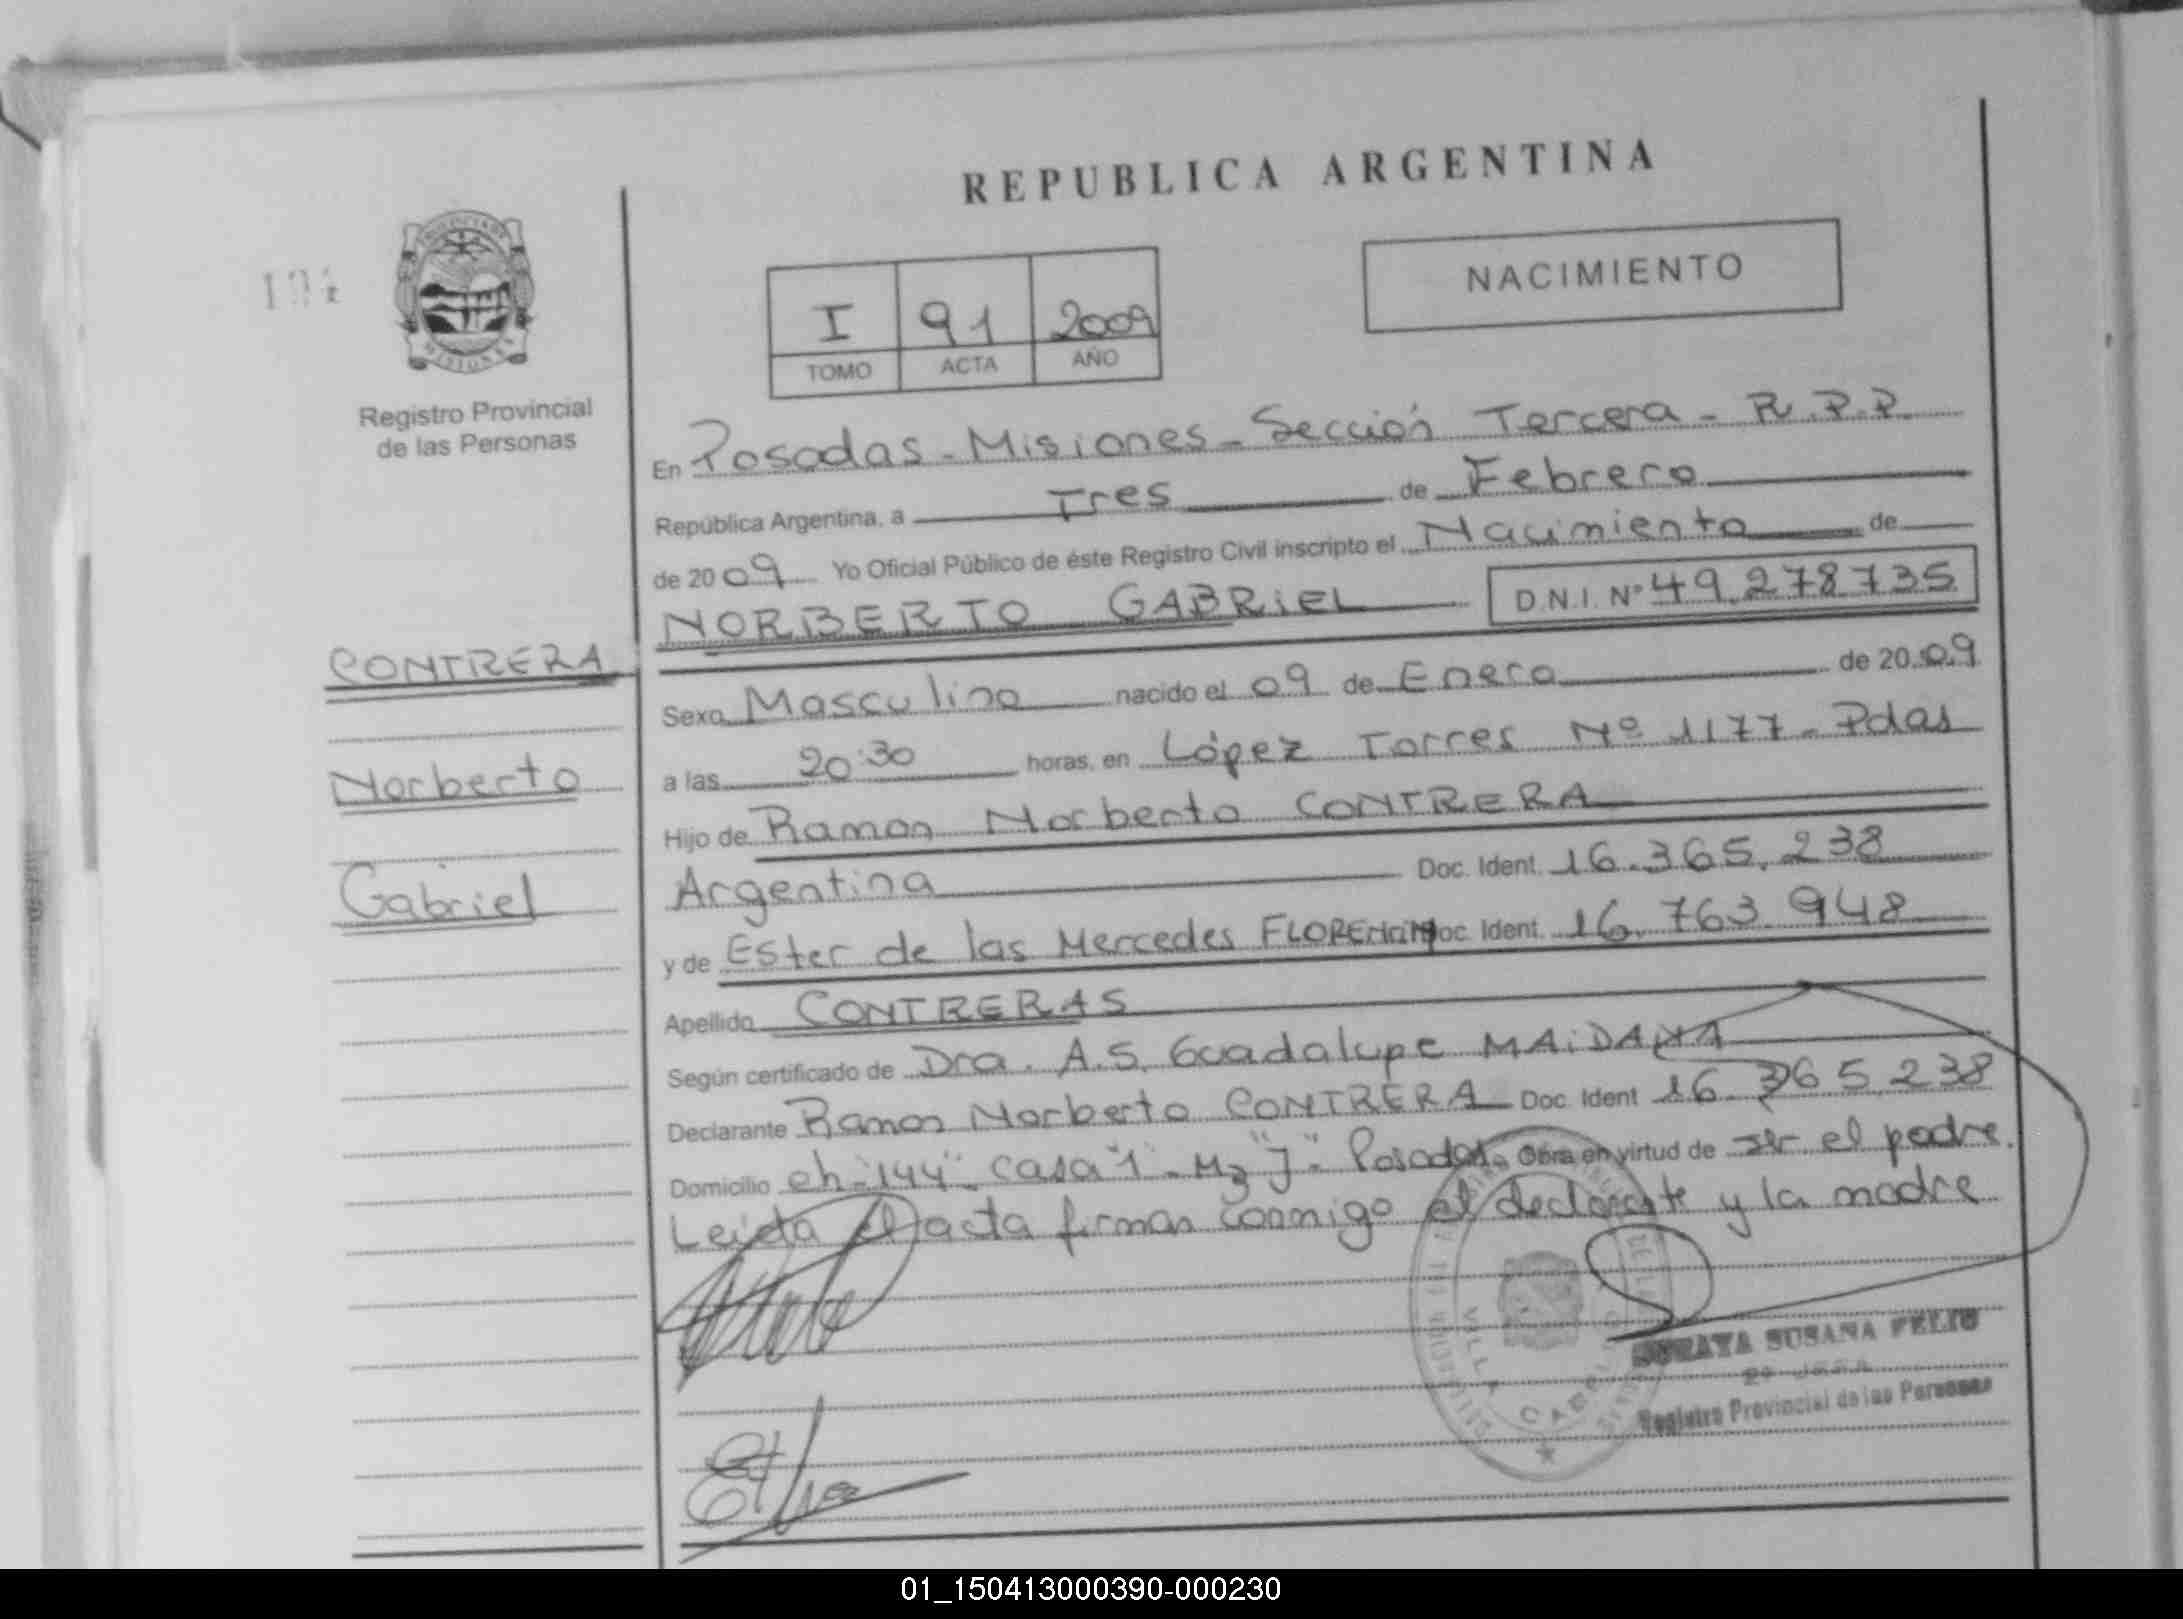 REPUBLICA ARGENTINA
NACIMIENTO
I 91 2009
TOMO ACTA AÑO
MISIONES
Registro Provincial
de las Personas
En Posadas - Misiones - Sección Tercera - R.P.P.
República Argentina, a Tres de Febrero
de 2009 Yo Oficial Público de éste Registro Civil inscripto el Nacimiento de
NORBERTO GABRIEL D.N.I. Nº 49.278735
CONTRERA
Norberto
Gabriel
Sexo Masculino nacido el 09 de Enero de 2009
a las 20:30 horas, en López Torres Nº 1177 - Pdas
Hijo de Ramon Norberto CONTRERA
Argentina Doc. Ident. 16.365.238
y de Ester de las Mercedes Doc. Ident. 16.763.948
Apellido CONTRERAS
Según certificado de Dra. A.S. Guadalupe MAIDANA
Declarante Ramon Norberto CONTRERA Doc. Ident 16.365.238
Domicilio ch "144" casa "1" - Mz "J" - Posadas Obra en virtud de ser el padre.
Leida el acta firman conmigo el declarante y la madre
VILLA CABELLO
SORAYA SUSANA FELIU
Registro Provincial de las Personas
01_150413000390-000230